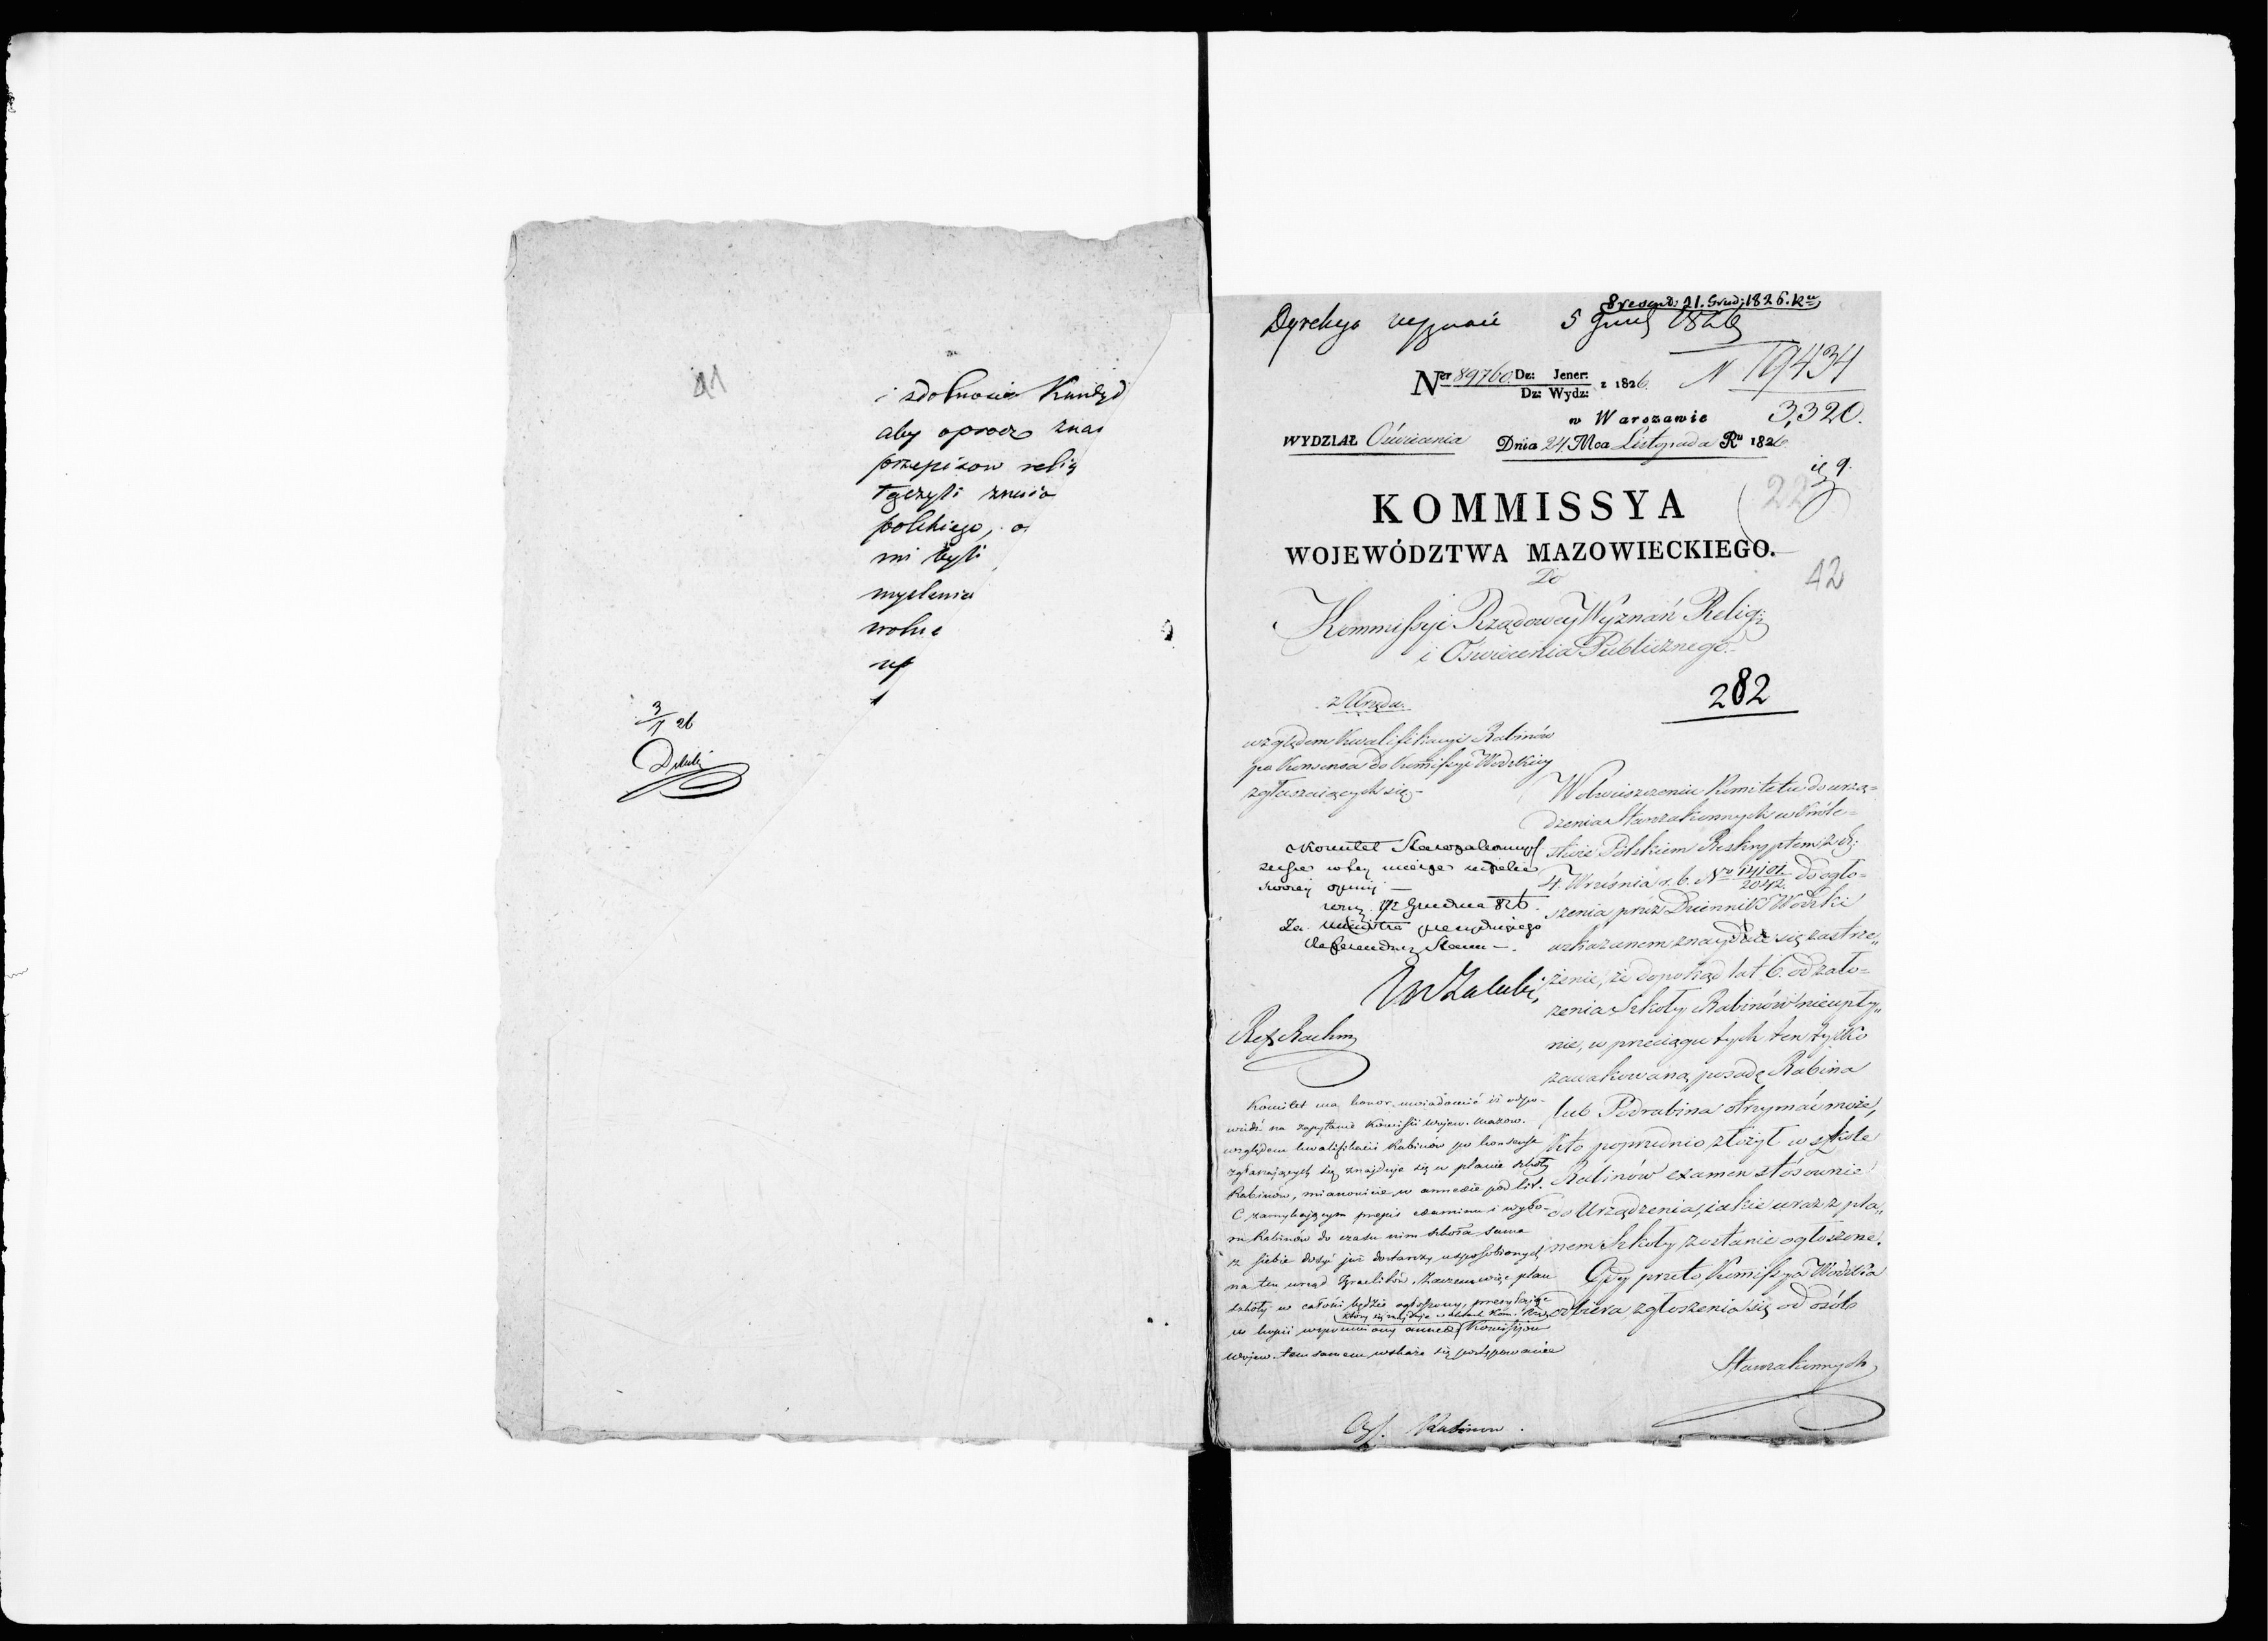 41
i zdolności Kandyd
aby oprocz znai
przepisow relig
łączyli znaio
polskiego, o
ni byli
myslenia
wolne
up
3/1 26
Presend: 21. Grud: 1826. Ru
Dyrekcya wyznań 5 Grud 1826
Ner 89760. Dz: Jener: Dz: Wydz: z 1826.
N 19434
3,320.
w Warszawie
WYDZIAŁ Oświecenia Dnia 24. Mca Listopada Ru 1826
22
42
KOMMISSYA
WOJEWÓDZTWA MAZOWIECKIEGO.
Do
Kommissyi Rządowey Wyznań Relig:
i Oswiecenia Publicznego.
282
z Urzędu.
względem kwalifikacyi Rabinów
po konsensa do Komissyi Wodzkiey
zgłaszaiących się
Komitet Starozakonnych
zechce w tey mierze udzielić
swoiey opinii —
12 Grudnia 826.
Za Ministra prezyduiącego
Referendarz Stanu —
Komitet ma honor uwiadomić iż odpo-
wiedź na zapytanie Komissii wojew. Mazow.
względem kwalifikacii Rabinów po konsensa
zgłaszających się znajduje się w planie szkoły
Rabinów, mianowicie w annexie pod lit.
C zamykającym przepis examinu i wybo-
ru Rabinów do czasu nim szkoła sama
z siebie dosyć już dostarczy usposobionych
na ten urząd Izraelitów. Zanim więc plan
szkoły w całości będzie ogłoszony, przesyłając
w kopii wspomniony annex Komissyom
wojew. tem samem wskaże się postępowanie
W obwieszczeniu Komitetu do urzą-
dzenia Starozakonnych w Króle-
stwie Polskiem Reskryptem z d:
4. Września r. b. No do ogło-
szenia przez Dziennik Wodzki
wskazanem znayduie się zastrze„
żenie, że dopokąd lat 6. od zało-
żenia Szkoły Rabinów nieupły„
nie, w przeciągu tych ten tylko
zawakowaną posadę Rabina
lub Podrabina otrzymać może,
kto poprzednio złożył w szkole
Rabinów examen stósownie
do Urządzenia, iakie wraz z pla„
nem Szkoły zostanie ogłoszone.
Gdy przeto Komissya Wodzka
odbiera zgłoszenia się od osób
Starozakonnych
Rabinow.